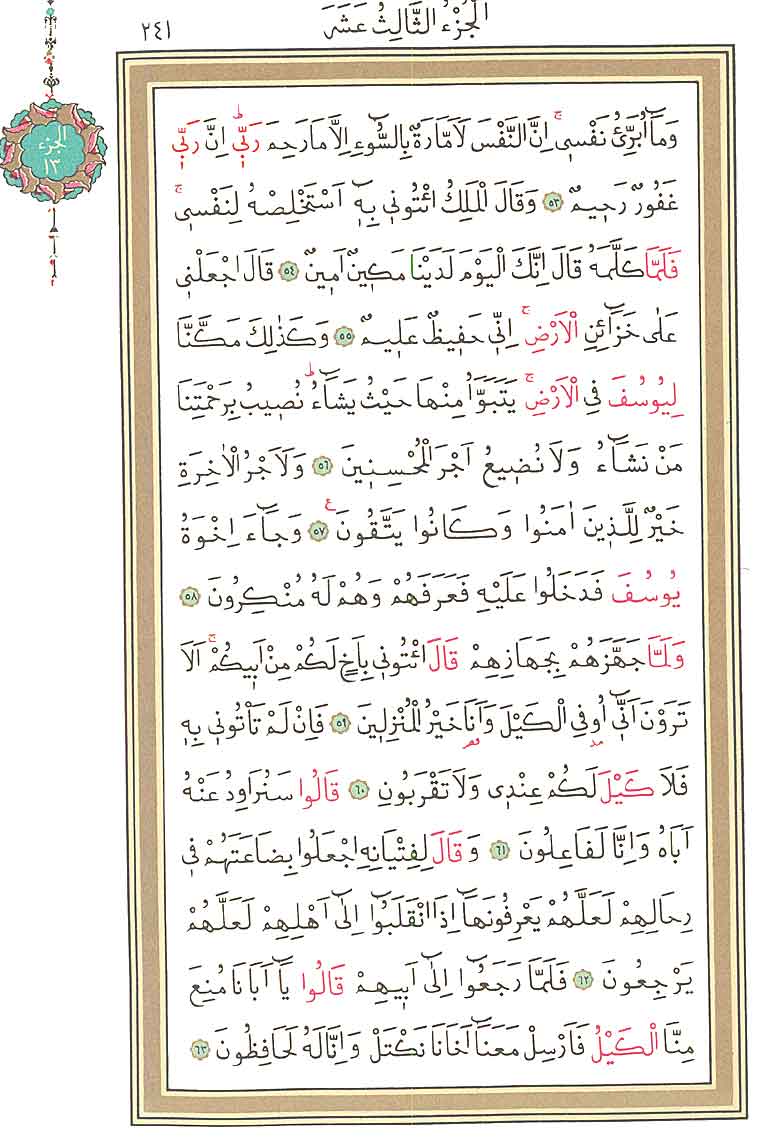 اَلْجُزْءُ الثَّالِثُ عَشَرَ
٢٤١
الجزء
١٣
وَمَٓا اُبَرِّئُ نَفْسٖيۚ اِنَّ النَّفْسَ لَاَمَّارَةٌ بِالسُّٓوءِ اِلَّا مَا رَحِمَ رَبّٖيۜ اِنَّ رَبّٖي
غَفُورٌ رَحٖيمٌ ٥٣ وَقَالَ الْمَلِكُ ائْتُونٖي بِهٖٓ اَسْتَخْلِصْهُ لِنَفْسٖيۚ
فَلَمَّا كَلَّمَهُ قَالَ اِنَّكَ الْيَوْمَ لَدَيْنَا مَكٖينٌ اَمٖينٌ ٥٤ قَالَ اجْعَلْنٖي
عَلٰى خَزَٓائِنِ الْاَرْضِۚ اِنّٖي حَفٖيظٌ عَلٖيمٌ ٥٥ وَكَذٰلِكَ مَكَّنَّا
لِيُوسُفَ فِي الْاَرْضِۚ يَتَبَوَّاُ مِنْهَا حَيْثُ يَشَٓاءُۜ نُصٖيبُ بِرَحْمَتِنَا
مَنْ نَشَٓاءُ وَلَا نُضٖيعُ اَجْرَ الْمُحْسِنٖينَ ٥٦ وَلَاَجْرُ الْاٰخِرَةِ
خَيْرٌ لِلَّذٖينَ اٰمَنُوا وَكَانُوا يَتَّقُونَ ع ٥٧ وَجَٓاءَ اِخْوَةُ
يُوسُفَ فَدَخَلُوا عَلَيْهِ فَعَرَفَهُمْ وَهُمْ لَهُ مُنْكِرُونَ ٥٨
وَلَمَّا جَهَّزَهُمْ بِجَهَازِهِمْ قَالَ ائْتُونٖي بِاَخٍ لَكُمْ مِنْ اَبٖيكُمْۚ اَلَا
تَرَوْنَ اَنّٖٓي اُو۫فِي الْكَيْلَ وَاَنَا خَيْرُ الْمُنْزِلٖينَ ٥٩ فَاِنْ لَمْ تَأْتُونٖي بِهٖ
مد قصر
فَلَا كَيْلَ لَكُمْ عِنْدٖي وَلَا تَقْرَبُونِ ٦٠ قَالُوا سَنُرَاوِدُ عَنْهُ
اَبَاهُ وَاِنَّا لَفَاعِلُونَ ٦١ وَقَالَ لِفِتْيَانِهِ اجْعَلُوا بِضَاعَتَهُمْ فٖي
رِحَالِهِمْ لَعَلَّهُمْ يَعْرِفُونَهَٓا اِذَا انْقَلَبُٓوا اِلٰٓى اَهْلِهِمْ لَعَلَّهُمْ
يَرْجِعُونَ ٦٢ فَلَمَّا رَجَعُٓوا اِلٰٓى اَبٖيهِمْ قَالُوا يَٓا اَبَانَا مُنِعَ
مِنَّا الْكَيْلُ فَاَرْسِلْ مَعَنَٓا اَخَانَا نَكْتَلْ وَاِنَّا لَهُ لَحَافِظُونَ ٦٣